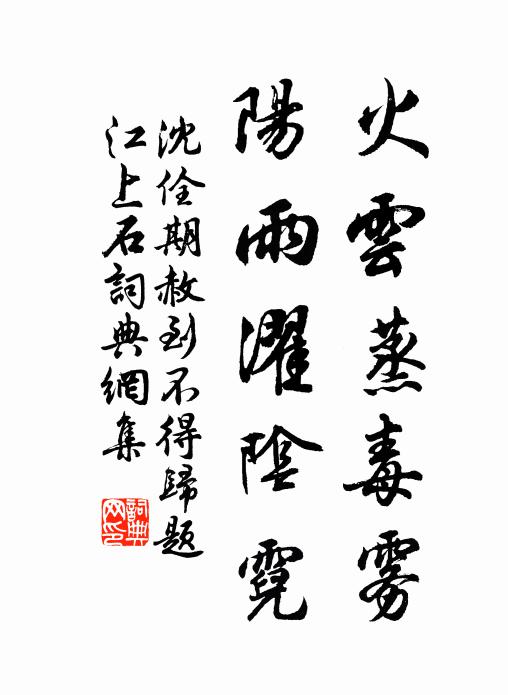 火雲蒸毒霧
陽雨濯陰霓
沈佺期赦到不得歸題
江上石詞典網集
詞典
网印